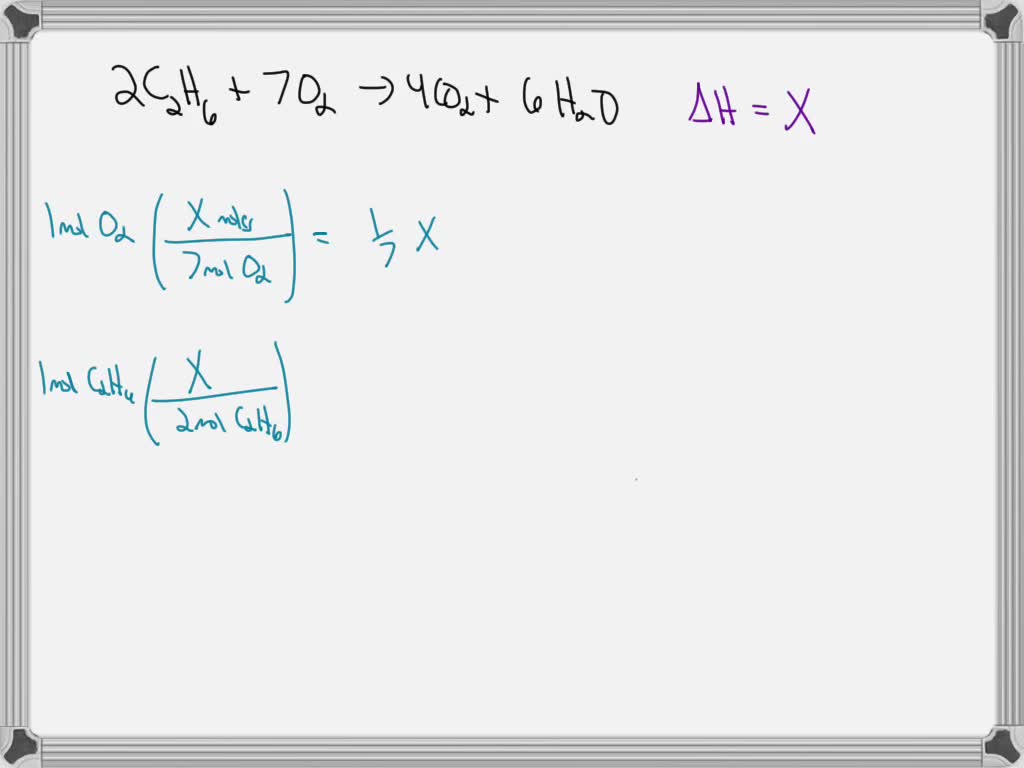 2C₂H₆ + 7O₂ → 4CO₂ + 6H₂O ΔH = X
1mol O₂ (X moles / 7mol O₂) = 1/7 X
1mol C₂H₆ (X / 2mol C₂H₆)